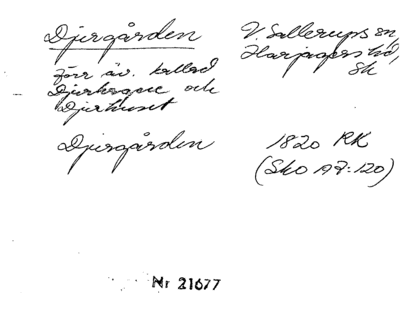 Djurgården V. Sallerups sn,
Harjagers hd,
Sk
förr äv. kallad
och
Djurhuset
Djurgården 1820 RK
(Sko A9:120)
Nr 21677